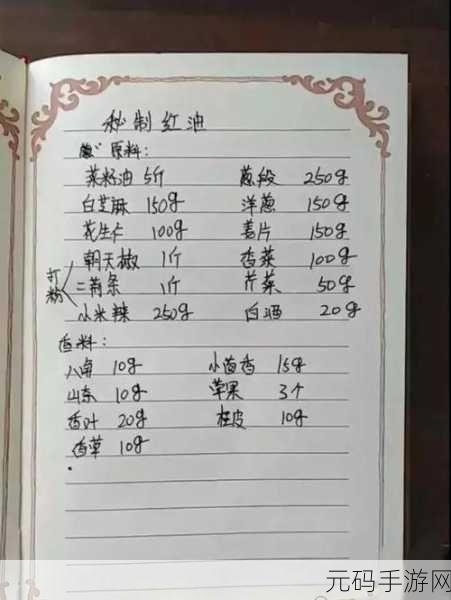 秘制红油
原料:
菜籽油 5斤 葱段 250g
白芝麻 150g 洋葱 150g
花生仁 100g 姜片 150g
朝天椒 1斤 香菜 100g
打粉 二荆条 1斤 芹菜 50g
小米辣 250g 白酒 20g
香料:
八角 10g 小茴香 15g
山奈 10g 草果 3个
香叶 20g 桂皮 10g
香草 10g
元码手游网